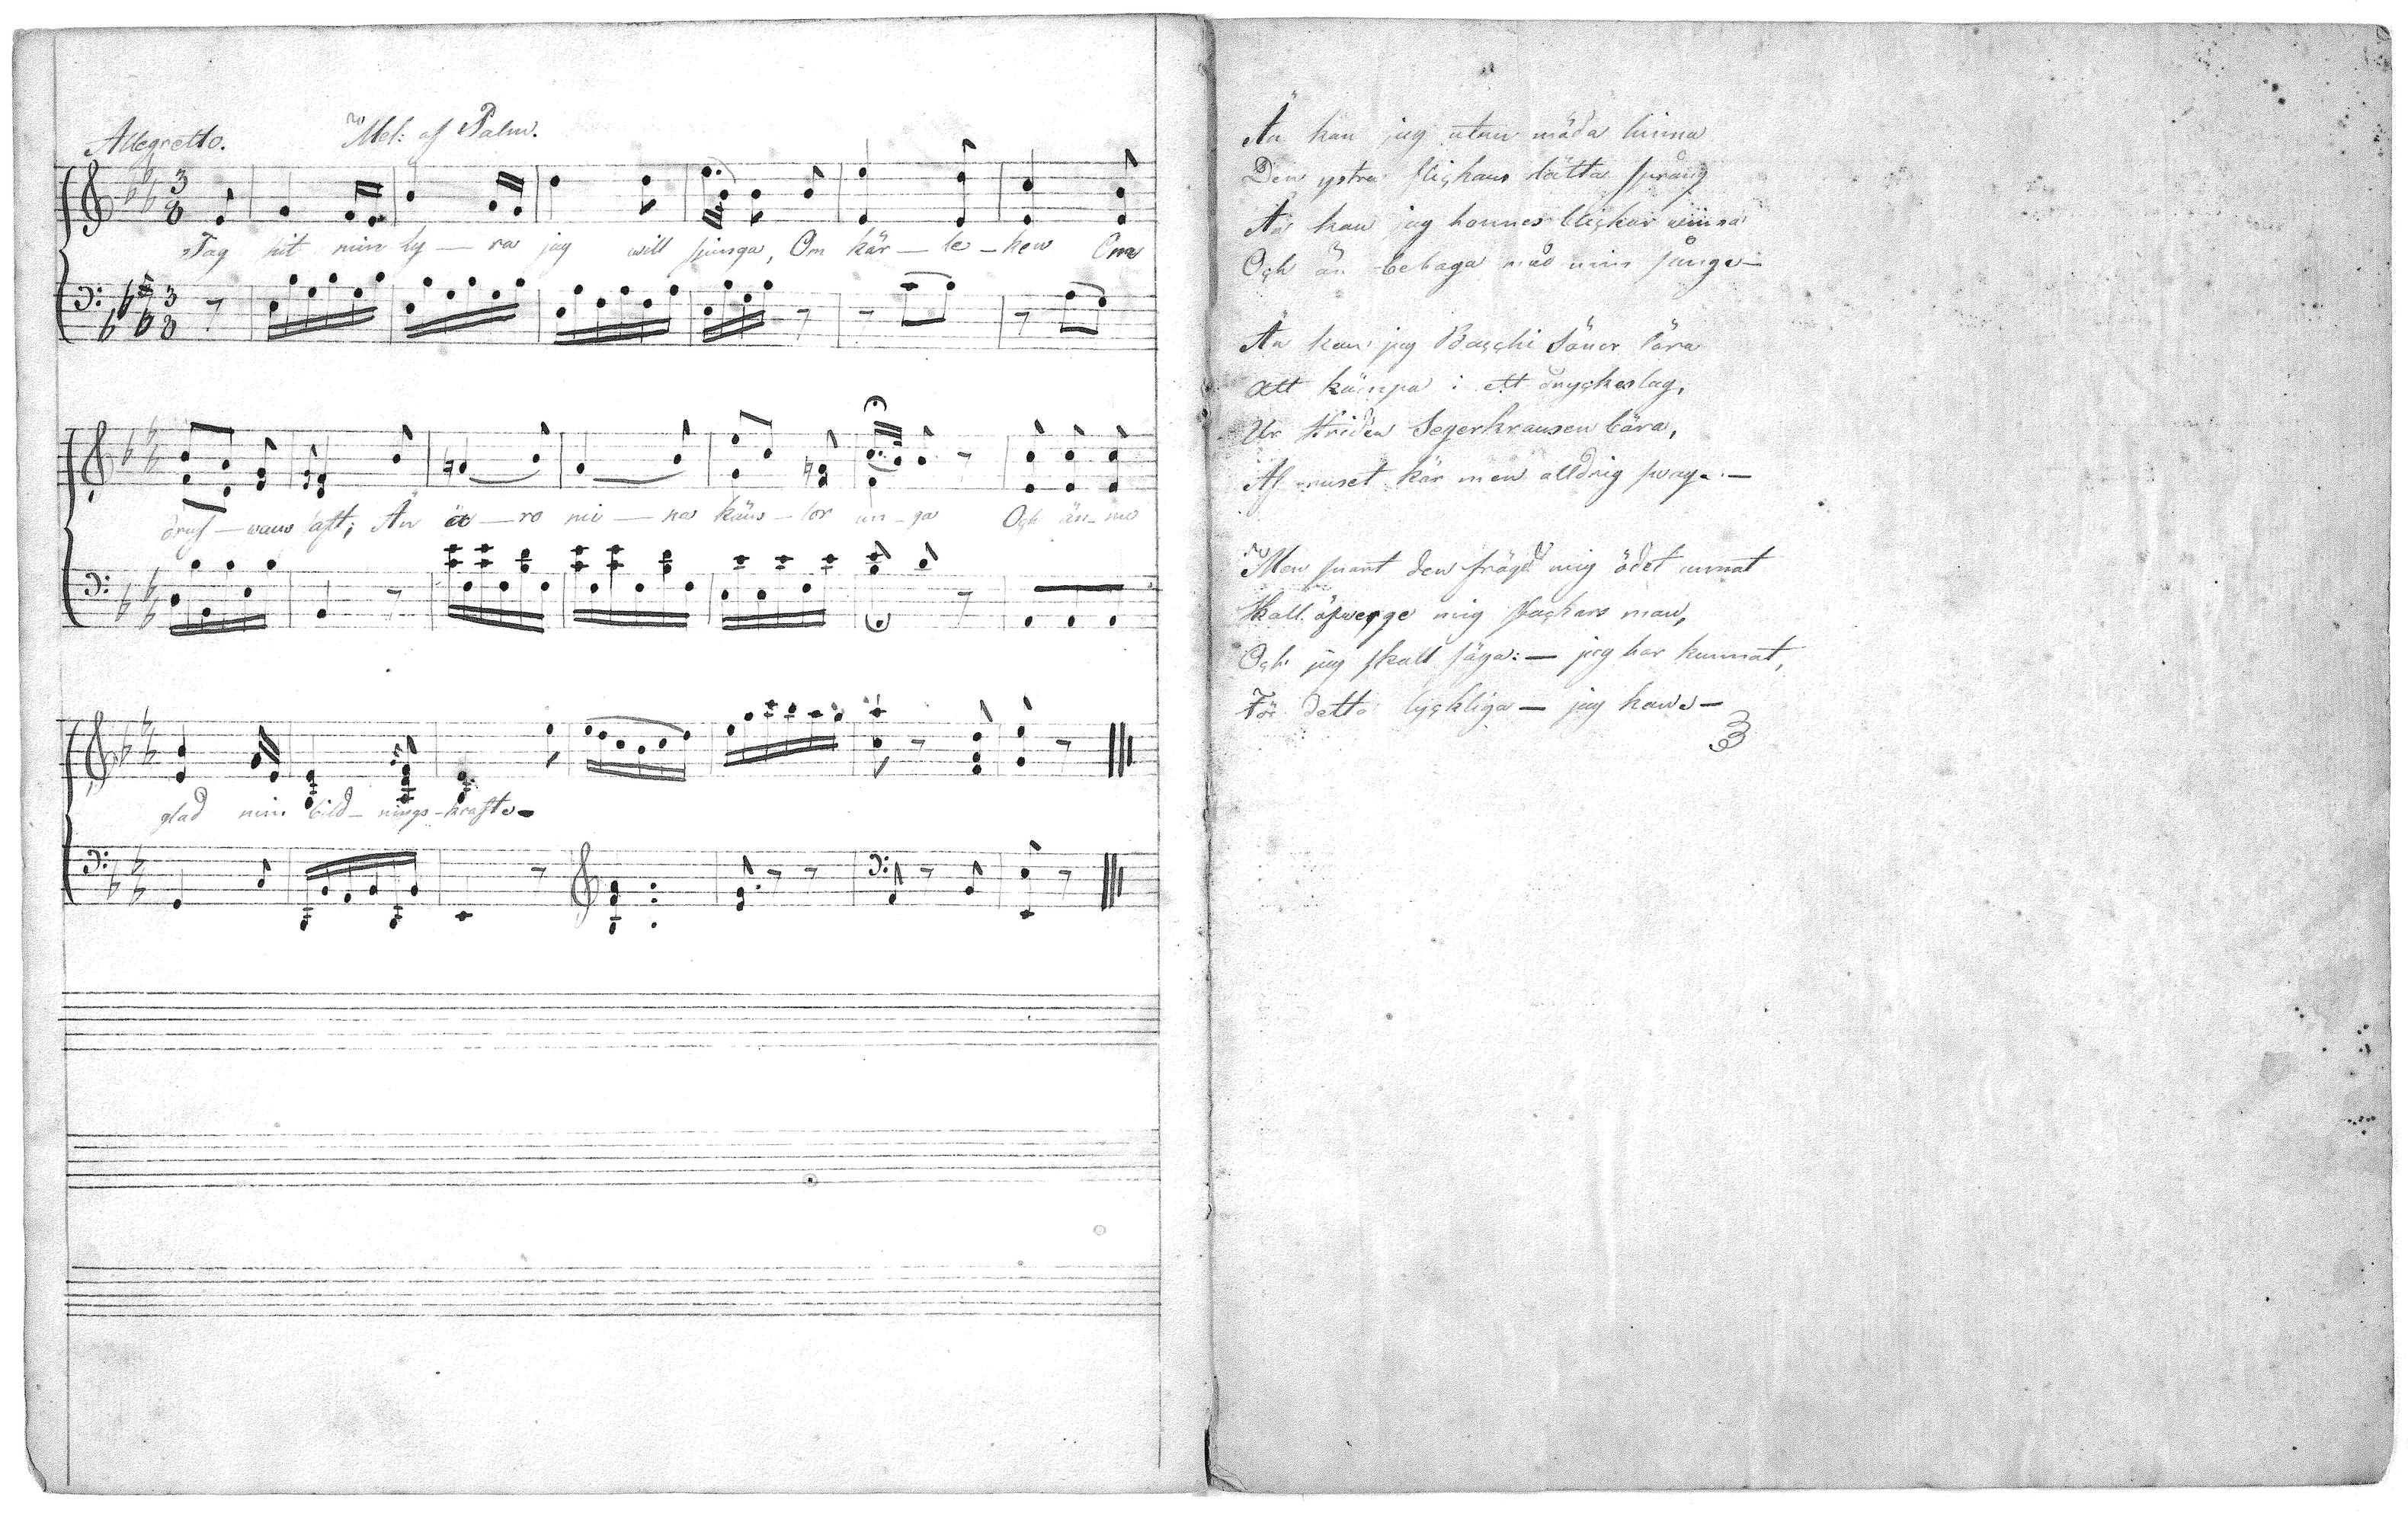 Allegretto. Mel: af Palm.
Tag hit min Ly — ra jag will sjunga, Om kär — le — ken Om
druf — wans saft; Än ä — ro mi — na käns — lor un — ga Och än — nu
glad min bild — nings — kraft.
Än kan jag utan möda hinna
Den ystra flickans lätta språng
Än kan jag hennes blickar winna
Och än behaga med min sång.—
Än kan jag Bacchi Söner lära
Att kämpa i ett dryckeslag,
Ur Striden Segerkransen bära,
Af ruset kär men alldrig swag.—
Men snart den fröjd mig ödet unnat
Skall öfwerge mig stackars man,
Och jag skall säga:— jag har kunnat,
För detta lyckliga — jag kan.—